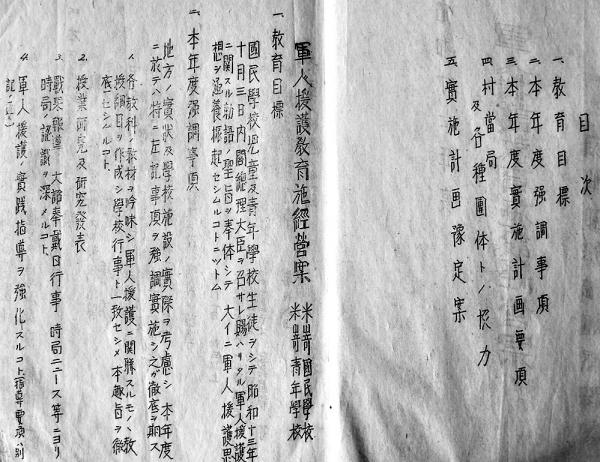 目次
一、教育目標
二、本年度強調事項
三、本年度実施計画要項
四、村當局及各種團体トノ協力
五、實施計画豫定案
軍人援護教育施經営案
米崎國民學校
米崎青年學校
一、教育目標
國民學校児童及青年學校生徒ヲシテ昭和十三年
十月三日内閣總理大臣ヲ召サレ賜ハリタル軍人援護
ニ関スル勅語ノ聖旨ヲ奉体シテ大イニ軍人援護思
想ヲ涵養振起セシムルコトニツトム
二、本年度強調事項
地方ノ實状及學校施設ノ實際ヲ考慮シ本年度
ニ於テハ特ニ左記事項ヲ強調實施シ之ガ徹底ヲ期ス
1、各教科ノ教材ヲ吟味シ軍人援護ニ関聯スルモノヽ教
授細目ヲ作成シ學校行事ト一致セシメ本趣旨ヲ徹
底セシムルコト
2、授業研究及研究發表
3、戰果報導 大詔奉戴日行事 時局ニュース等ニヨリ
時局ノ認識ヲ深メルコト
4、軍人援護ノ實踐指導ヲ強化スルコト、指導要項ハ別
記ノ通